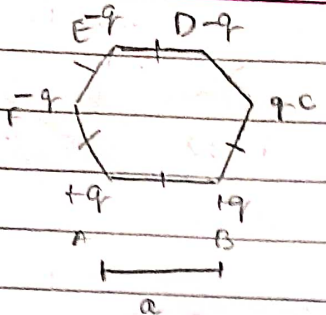 E -q D -q
F -q q C
+q +q
A B
a